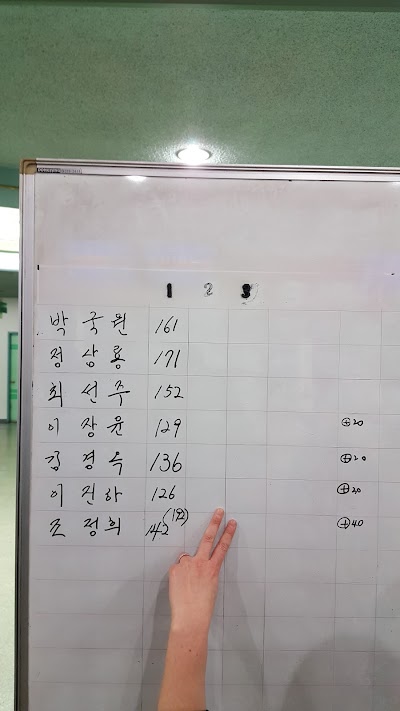 1 2 3
박국원 161
정상룡 171
최선주 152
이장윤 129 ⊕20
김경옥 136 ⊕20
이진하 126 ⊕20
조정희 142 (192) ⊕40